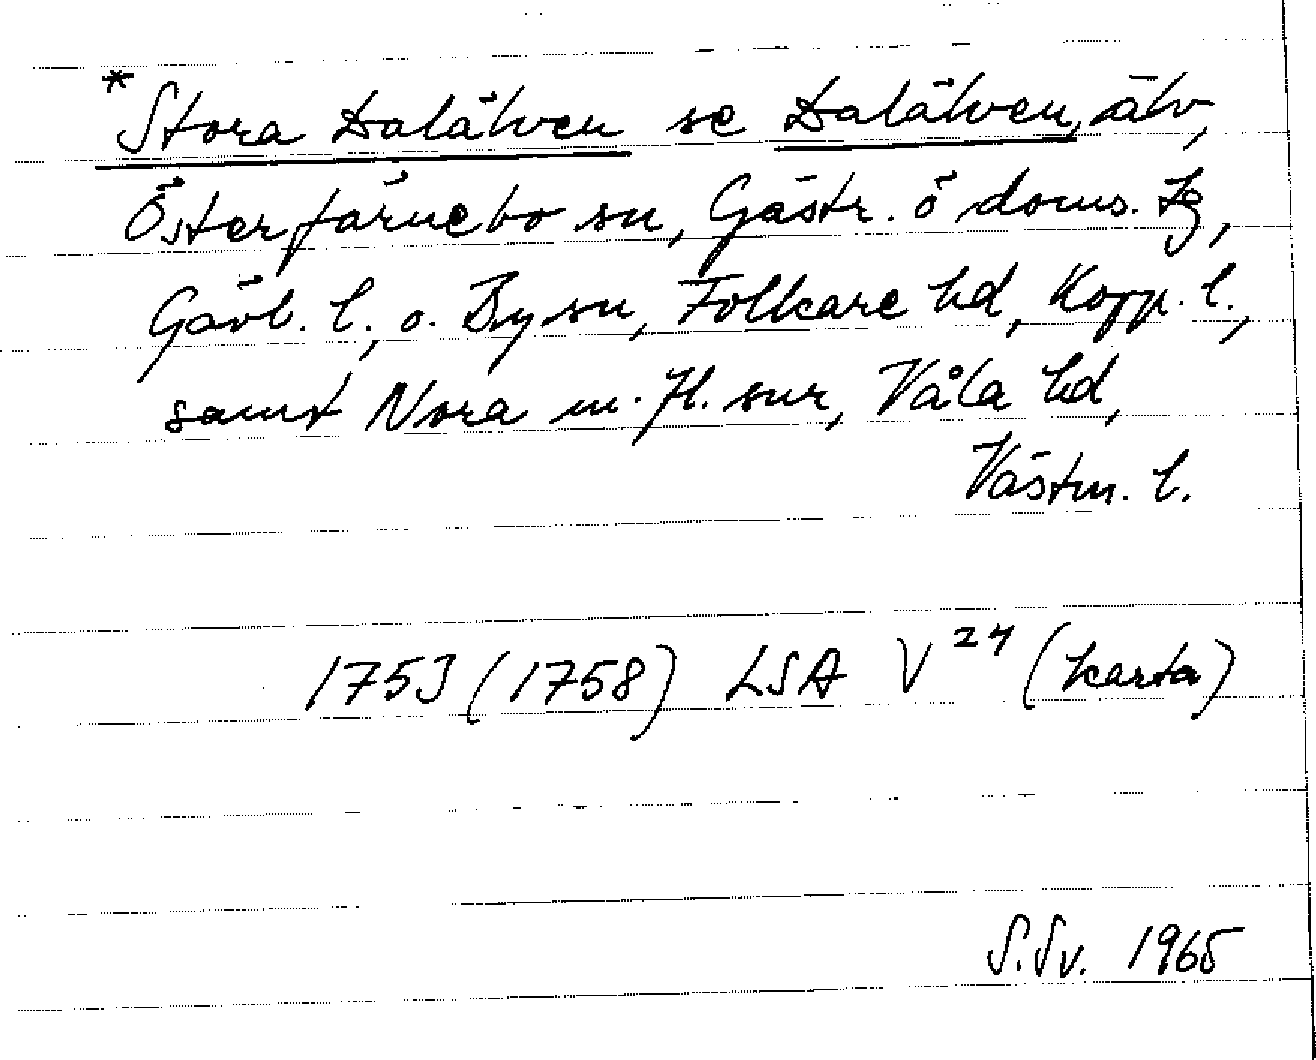 *Stora Dalälven se Dalälven, älv,
Österfärnebo sn, Gästr. ö doms. tg,
Gävl. l., o. By sn, Folkare hd, Kopp. l.,
samt Nora m. fl. snr, Våla hd,
Västm. l.
1753 (1758) LSA V²⁴ (karta)
S.Sv. 1965